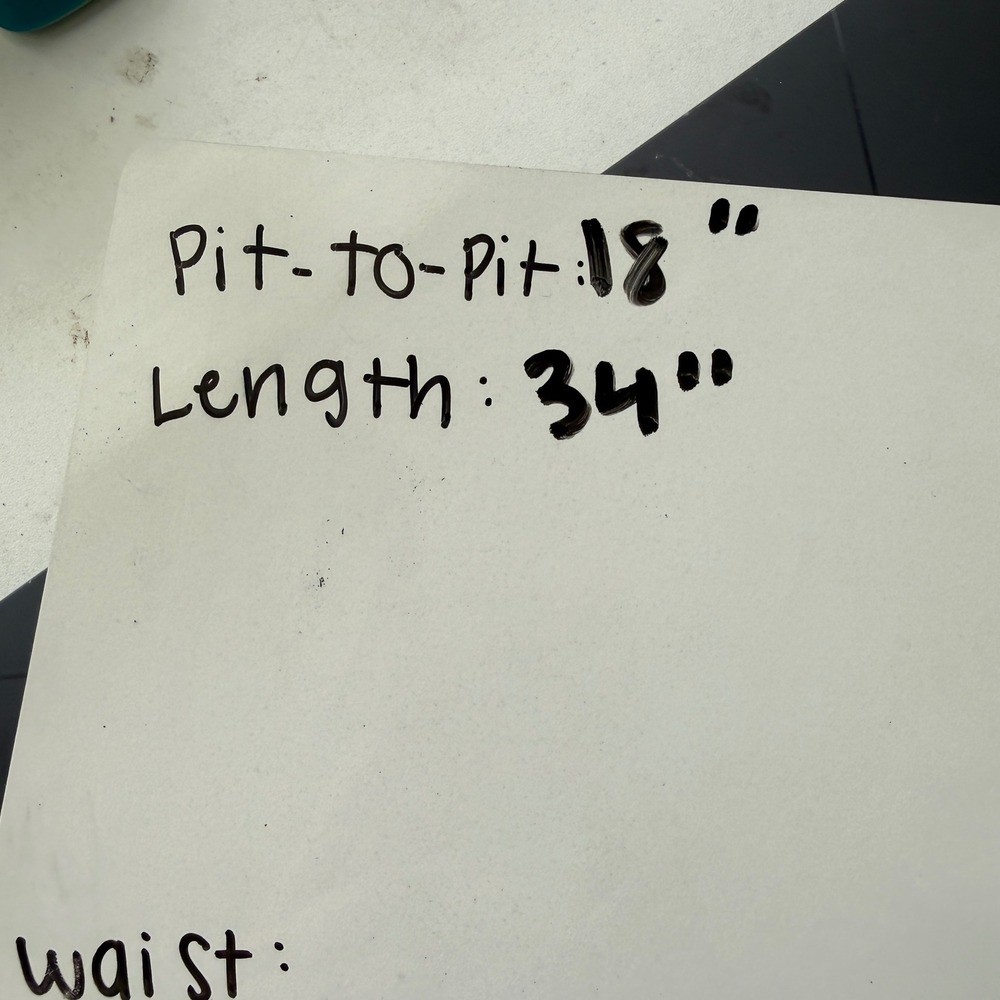 Pit-to-Pit:18"
Length: 34"
waist: